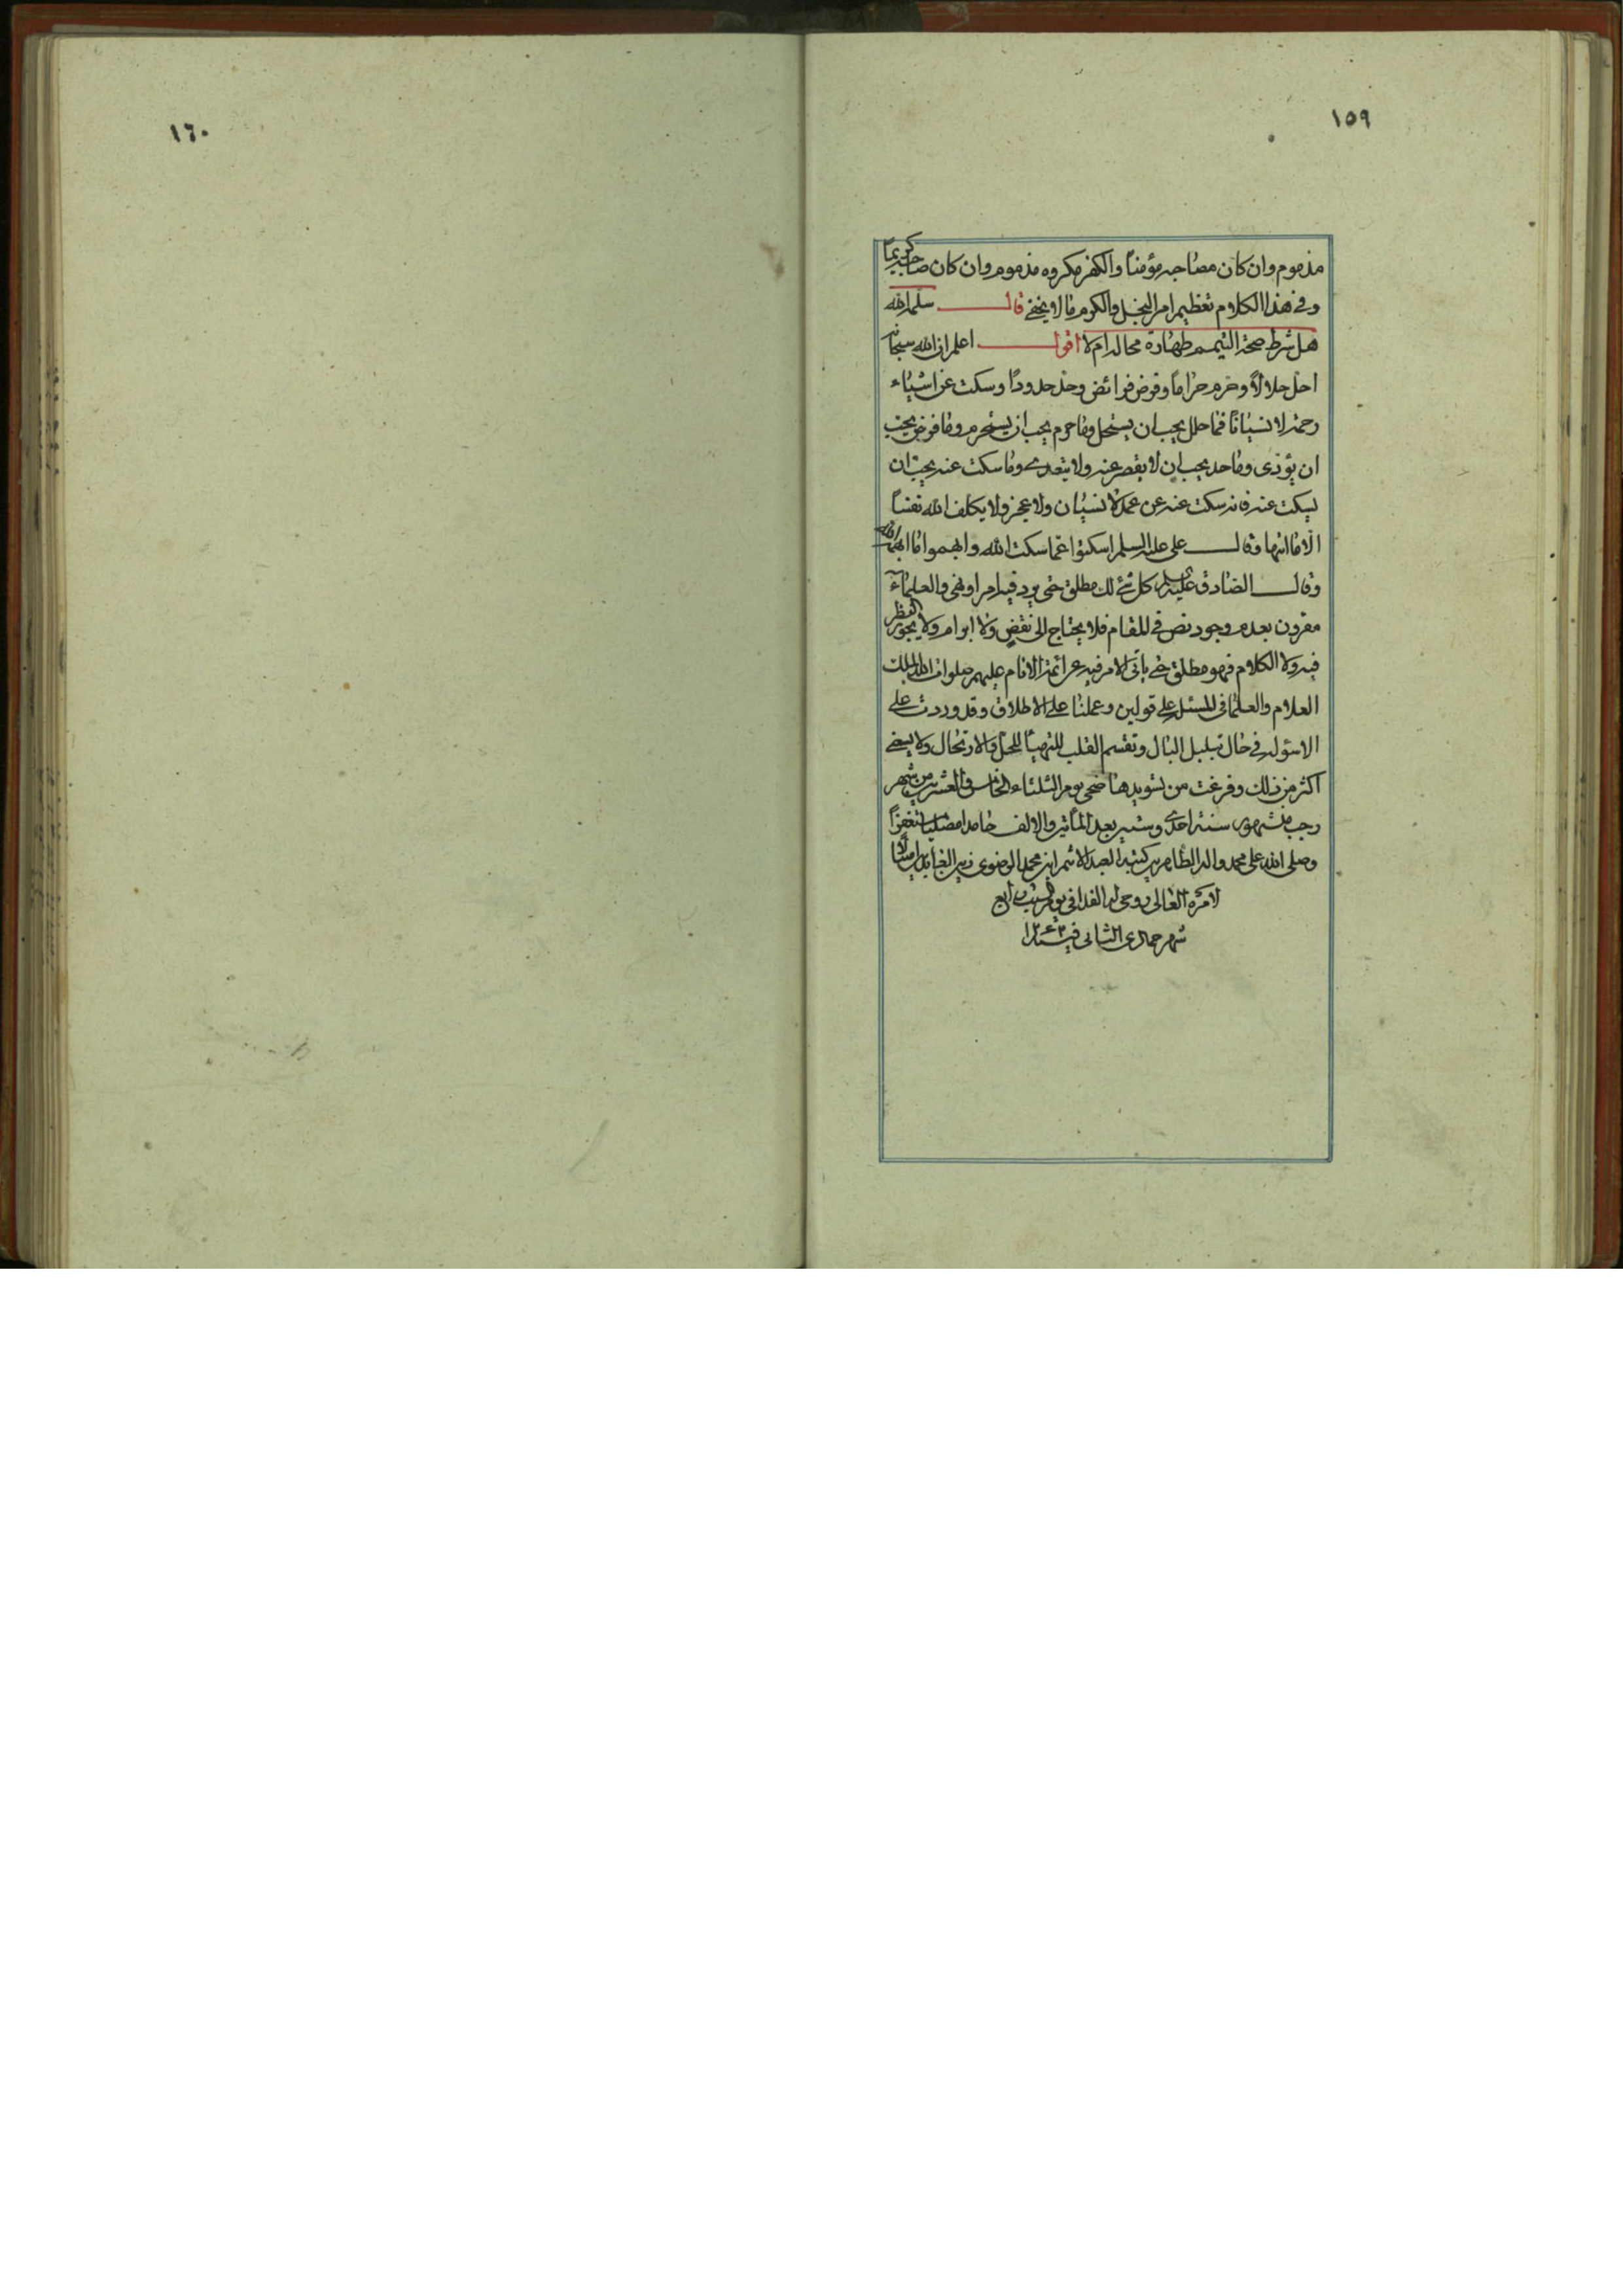 ١٥٩
مذموم وان كان مصاحبه مؤمناً والكفر مكروه مذموم وان كان صاحبه كريماً
وفي هذا الكلام تعظيم امر البخل والكرم ما لا يخفى قال سلمه الله
هل شرط صحة التيمم طهارة محاله ام لا اقول اعلم ان الله سبحانه
احل حلالاً وحرم حراماً وفرض فرائض وحد حدوداً وسكت عن اشياء
رحمة لا نسياناً فما حلل يجب ان يستحل وما حرم يجب ان يستحرم وما فرض يجب
ان يؤدى وما حد يجب ان لا يقصر عنه ولا يتعدى وما سكت عنه يجب ان
يسكت عنه فانه سكت عنه عن عمد لا نسيان ولا عجز ولا يكلف الله نفساً
الا ما اتيها وقال على عليه السلم اسكتوا عما سكت الله وابهموا ما ابهمه الله
وقال الصادق عليه السلم كل شئ لك مطلق حتى يرد فيه امر او نهى والعلماء
مقرون بعدم وجود نص في المقام فلا يحتاج الى نقض ولا ابرام ولا يجوز النظر
فيه ولا الكلام فهو مطلق حتى يأتى الامر فيه عن ائمة الانام عليهم صلوات الله الملك
العلام والعلماء في المسئلة على قولين وعملنا على الاطلاق وقد وردت على
الاسؤله في حال تبلبل البال وتقسم القلب للتهيأ للحل والارتحال ولا يسعنى
اكثر من ذلك وفرغت من تسويدها ضحى يوم الثلثاء الخامس والعشرين من شهر
رجب من شهور سنة احدى وستين بعد المأتين والالف حامدا مصليا مستغفراً
وصلى الله على محمد واله الطاهرين كتبه العبد الاثم ابن محمد الرضوى زين العابدين امتثالاً
لامره العالى روحى له الفدا في يوم السبت رابع
شهر جمادى الثانى في سنة
١٦٠